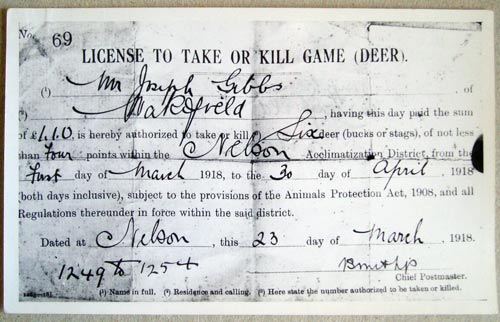 No. 69
LICENSE TO TAKE OR KILL GAME (DEER).
(¹) Mr Joseph Gibbs of
(²) Wakefield, having this day paid the sum
of £1.1.0, is hereby authorized to take or kill Six deer (bucks or stags), of not less
than Four points within the Nelson Acclimatization District, from the
First day of March 1918, to the 30 day of April, 1918
(both days inclusive), subject to the provisions of the Animals Protection Act, 1908, and all
Regulations thereunder in force within the said district.
Dated at Nelson, this 23 day of March, 1918.
1249 to 1254
Chief Postmaster.
(¹) Name in full. (²) Residence and calling. (³) Here state the number authorized to be taken or killed.